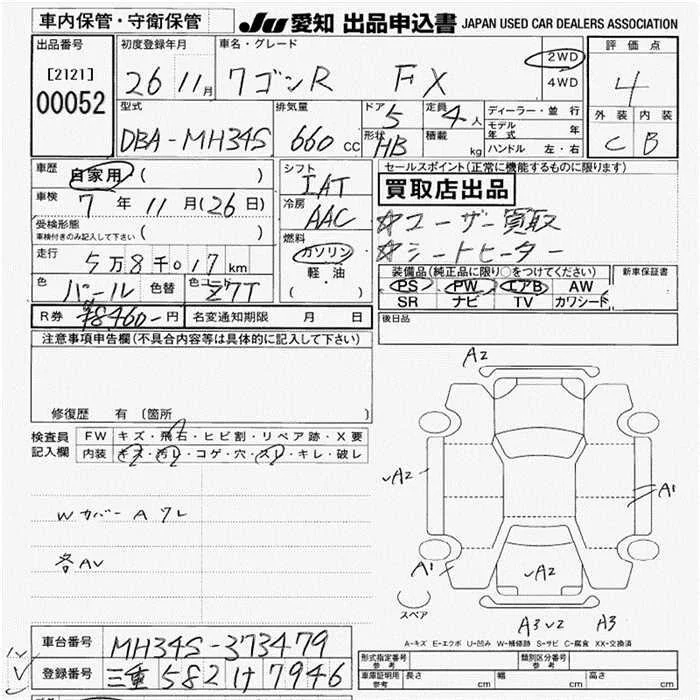 車内保管・守衛保管
JU 愛知 出品申込書 JAPAN USED CAR DEALERS ASSOCIATION
出品番号
[2121]
00052
初度登録年月
26 11月
車名・グレード
ワゴンR FX
2WD
4WD
評価点
4
外装 内装
C B
型式
DBA-MH34S
排気量
660 cc
ドア 5
形状 HB
定員 4人
積載 kg
ディーラー・並行
モデル年式 年
ハンドル 左・右
車歴 自家用 ( )
車検 7年11月(26日)
受検形態
車検付きのみ記入して下さい ( )
走行 5万8千017km
色 パール 色替 色コード Z7T
シフト
IAT
冷房
AAC
燃料
ガソリン
軽油
( )
セールスポイント(正常に機能するものに限ります)
買取店出品
☆ユーザー買取
☆シートヒーター
装備品(純正品に限り○をつけてください)
PS PW エアB AW
SR ナビ TV カワシート
新車保証書
R券 ¥8460-円 名変通知期限 月 日
後日品
注意事項申告欄(不具合内容等は具体的に記入して下さい)
修復歴 有(箇所 )
検査員記入欄
FW キズ・飛石・ヒビ割・リペア跡・X要
内装 キズ・汚レ・コゲ・穴・スレ・キレ・破レ
W カバー A ワレ
各AV
A2
A2
A1
A1
A2
スペア
A3V2 A3
A-キズ E-エクボ U-凹み W-補修跡 S-サビ C-腐食 XX-交換済
車台番号 MH34S-373479
登録番号 三重 582 け 7946
型式指定番号 参考
類別区分番号 参考
車庫証明用 参考 長さ cm 幅 cm 高さ cm